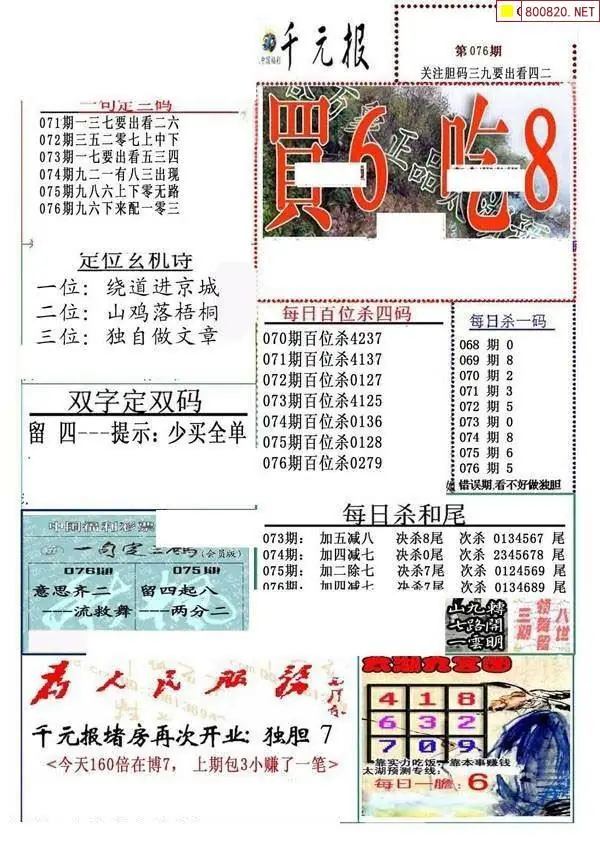 800820.NET
千元报
第076期
关注胆码三九要出看四二
一句定三码
071期一三七要出看二六
072期三五二零七上中下
073期一七要出看五三四
074期九二一有八三出现
075期九八六上下零无路
076期九六下来配一零三
買6 吃8
定位玄机诗
一位：绕道进京城
二位：山鸡落梧桐
三位：独自做文章
每日百位杀四码
070期百位杀4237
071期百位杀4137
072期百位杀0127
073期百位杀4125
074期百位杀0136
075期百位杀0128
076期百位杀0279
每日杀一码
068 期 0
069 期 8
070 期 2
071 期 3
072 期 5
073 期 0
074 期 8
075 期 6
076 期 5
错误期,看不好做独胆
双字定双码
留 四---提示：少买全单
每日杀和尾
073期： 加五减八 决杀8尾 次杀 0134567 尾
074期： 加四减七 决杀0尾 次杀 2345678 尾
075期： 加二除七 决杀7尾 次杀 0124569 尾
076期： 加四减七 决杀7尾 次杀 0134689 尾
中国福利彩票
一句定三码(会员版)
076期
意思齐二
---流救舞
075期
留四起八
---两分二
山九轉
七路開
一雲明
三期
领舞留
八世
为人民服务
千元报堵房再次开业：独胆 7
<今天160倍在博7， 上期包3小赚了一笔>
4 1 8
6 3 2
7 0 9
靠实力吃饭，靠本事赚钱
太湖预测专线：
每日一胆：6